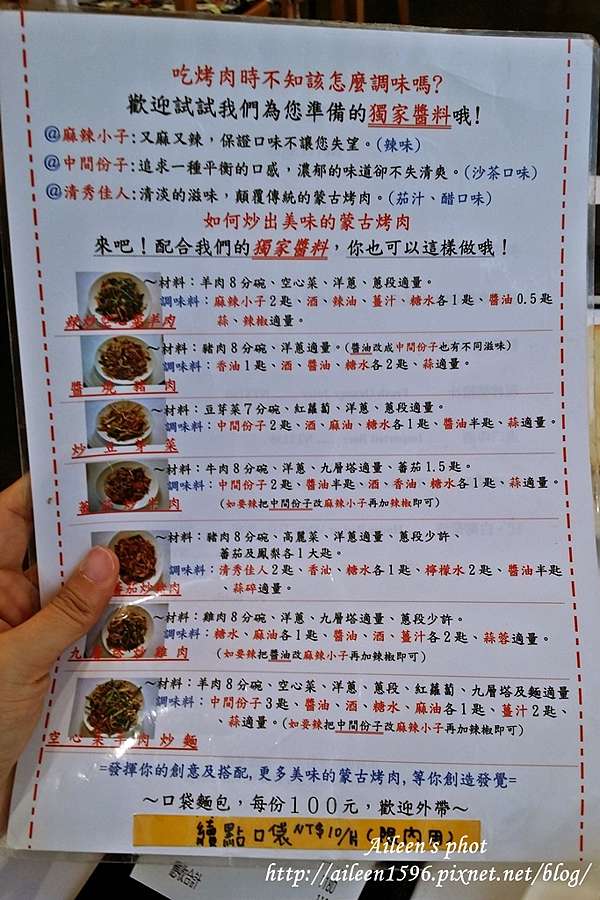 吃烤肉時不知該怎麼調味嗎?
歡迎試試我們為您準備的獨家醬料哦!
@麻辣小子:又麻又辣,保證口味不讓您失望。(辣味)
@中間份子:追求一種平衡的口感,濃郁的味道卻不失清爽。(沙茶口味)
@清秀佳人:清淡的滋味,顛覆傳統的蒙古烤肉。(茄汁、醋口味)
如何炒出美味的蒙古烤肉
來吧!配合我們的獨家醬料,你也可以這樣做哦!
~材料:羊肉8分碗、空心菜、洋蔥、蔥段適量。
調味料:麻辣小子2匙、酒、辣油、薑汁、糖水各1匙、醬油0.5匙
蒜、辣椒適量。
~材料:豬肉8分碗、洋蔥適量。(醬油改成中間份子也有不同滋味)
調味料:香油1匙、酒、醬油、糖水各2匙、蒜適量。
醬燒豬肉
~材料:豆芽菜7分碗、紅蘿蔔、洋蔥、蔥段適量。
調味料:中間份子2匙、酒、麻油、糖水各1匙、醬油半匙、蒜適量。
炒豆芽菜
~材料:牛肉8分碗、洋蔥、九層塔適量、蕃茄1.5匙。
調味料:中間份子2匙、醬油半匙、酒、香油、糖水各1匙、蒜適量。
(如要辣把中間份子改麻辣小子再加辣椒即可)
~材料:豬肉8分碗、高麗菜、洋蔥適量、蔥段少許、
蕃茄及鳳梨各1大匙。
調味料:清秀佳人2匙、香油、糖水各1匙、檸檬水2匙、醬油半匙
、蒜碎適量。
~材料:雞肉8分碗、洋蔥、九層塔適量、蔥段少許。
調味料:糖水、麻油各1匙、醬油、酒、薑汁各2匙、蒜蓉適量。
九層塔炒雞肉
(如要辣把醬油改麻辣小子再加辣椒即可)
~材料:羊肉8分碗、空心菜、洋蔥、蔥段、紅蘿蔔、九層塔及麵適量
調味料:中間份子3匙、醬油、酒、糖水、麻油各1匙、薑汁2匙、
、蒜適量。(如要辣把中間份子改麻辣小子再加辣椒即可)
空心菜羊肉炒麵
=發揮你的創意及搭配,更多美味的蒙古烤肉,等你創造發覺=
~口袋麵包,每份100元,歡迎外帶~
續點口袋NT$10/片(限內用)
Aileen's phot
http://aileen1596.pixnet.net/blog/